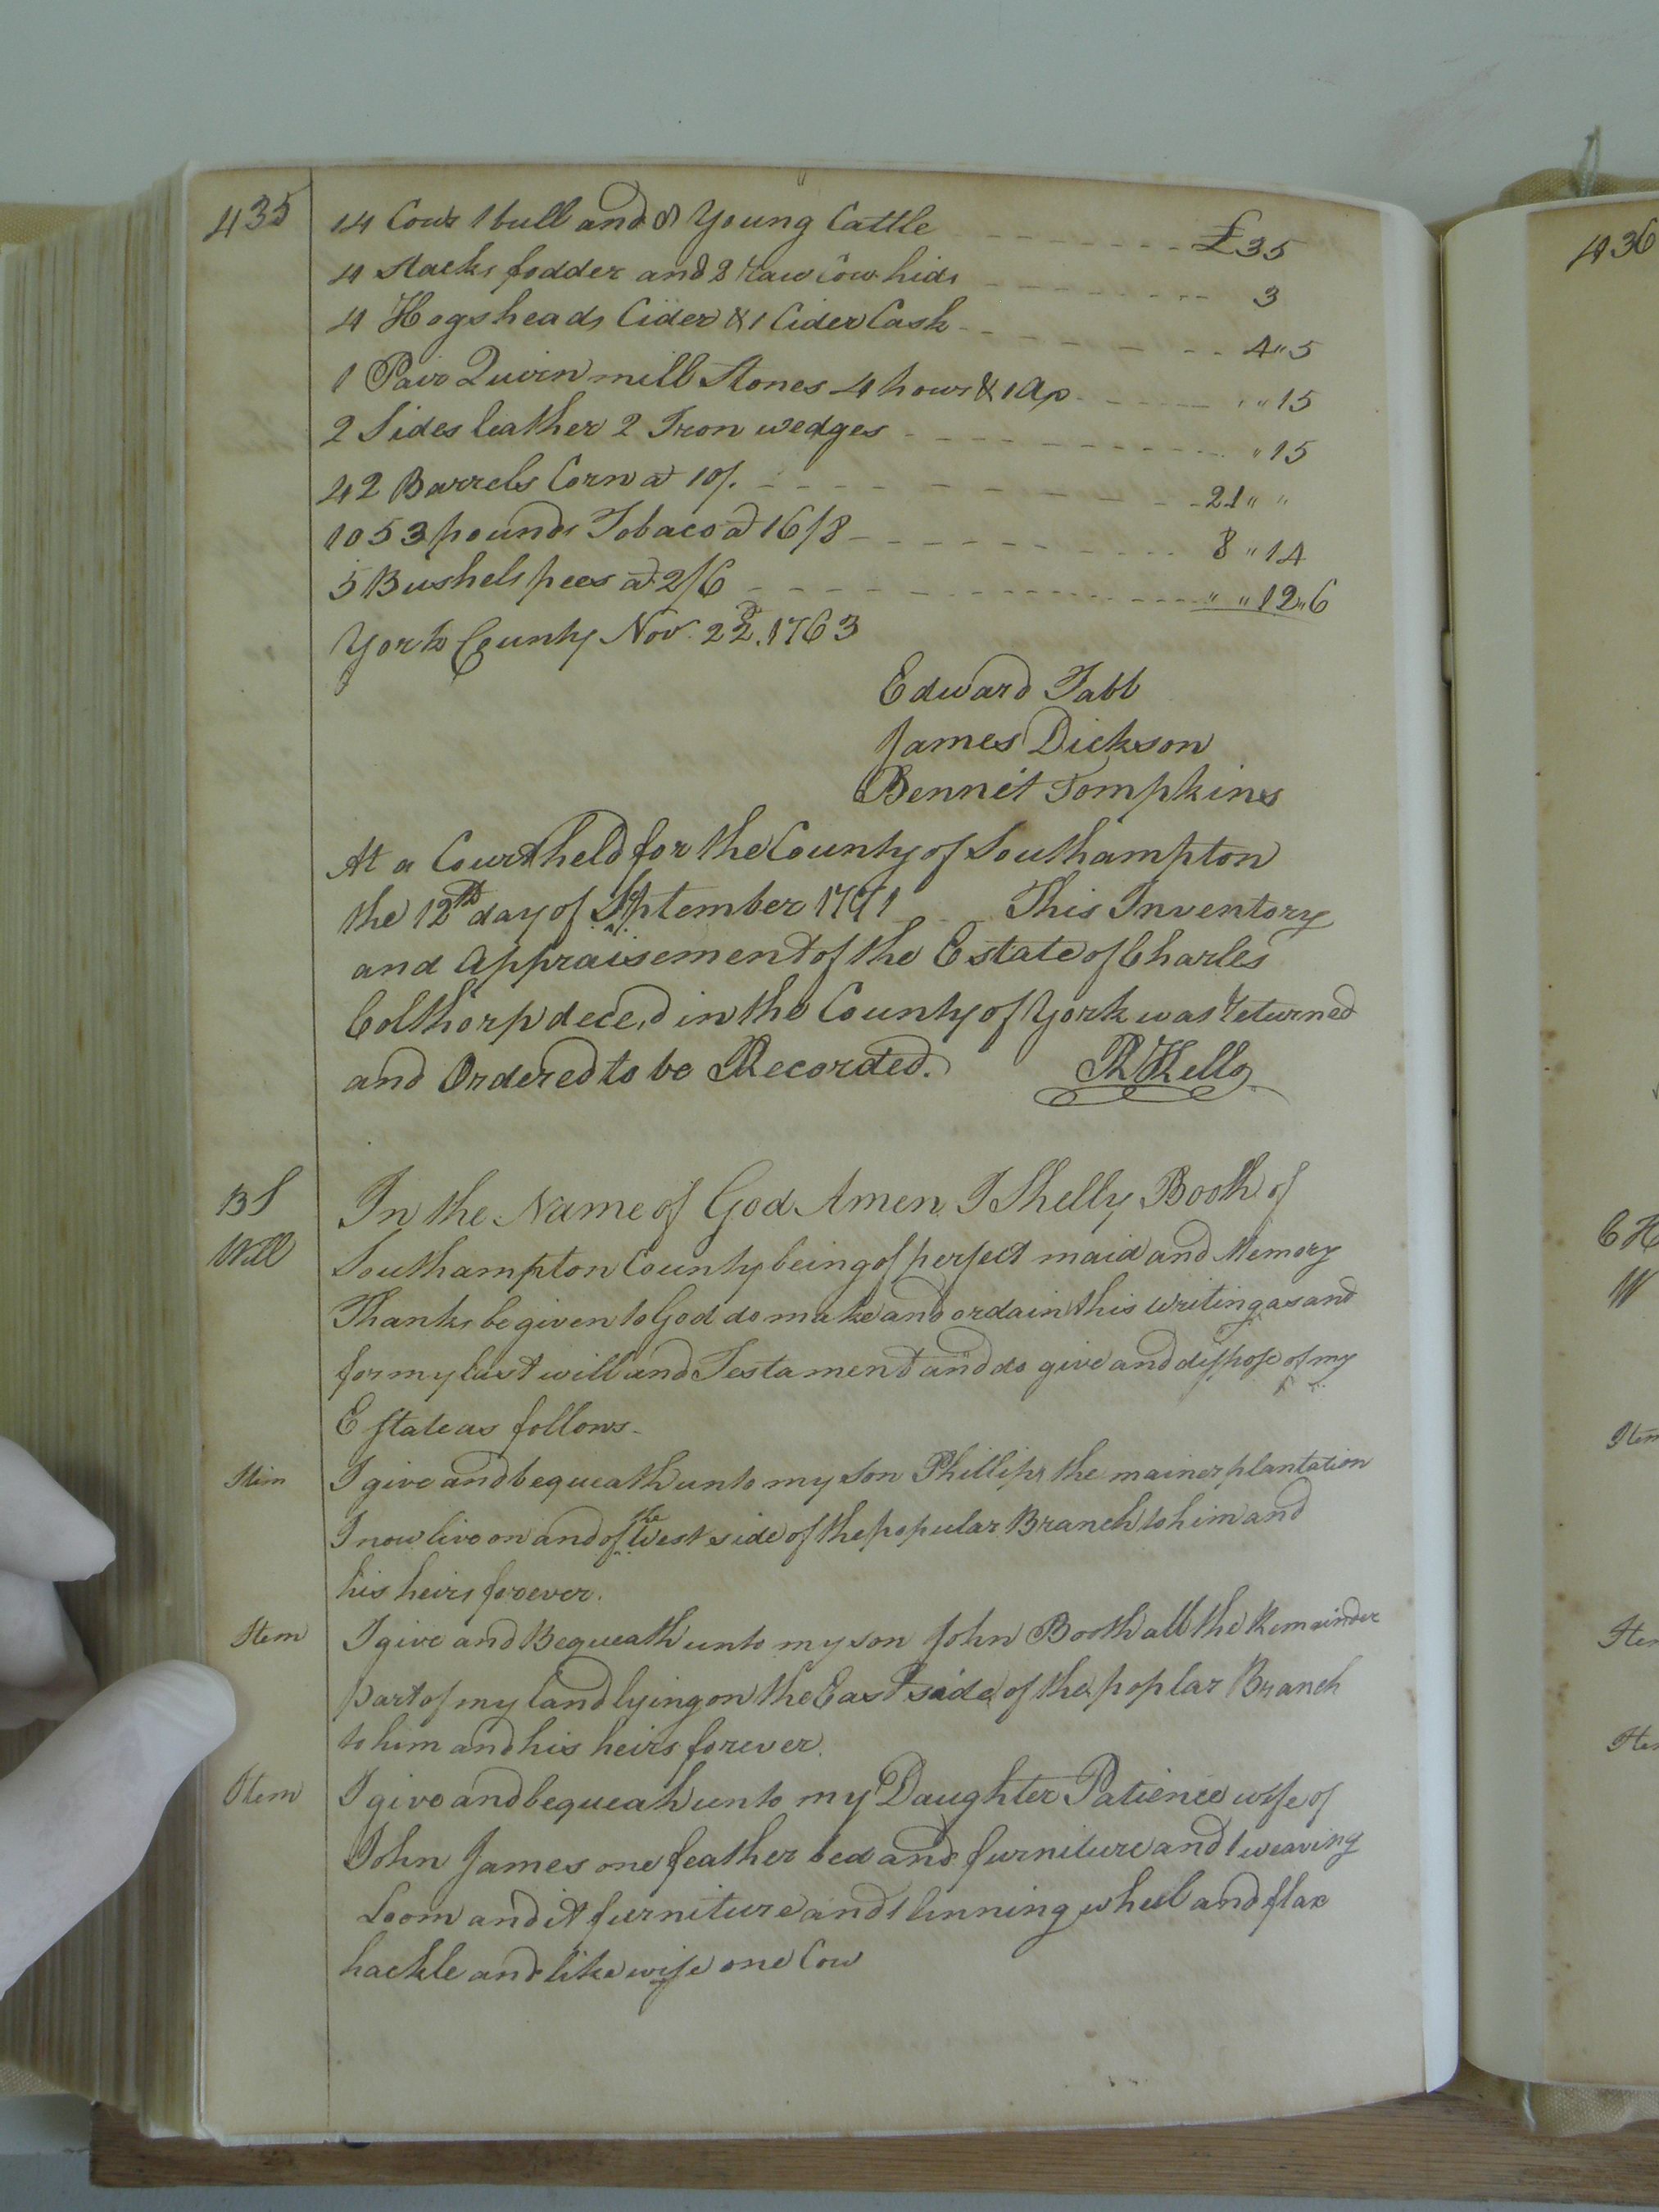 435
14 Cows 1 bull and 8 Young Cattle £35
4 Stacks fodder and 2 raw Cow hids 3
4 Hogsheads Cider & 1 Cider Cask 4 " 5
1 Pair Quirn mill Stones 4 hows & 1 Ax " " 15
2 Sides leather 2 Iron wedges " 15
42 Barrels Corn a 10/. 21 " "
1053 pounds Tobaco a 16/8 8 " 14
5 Bushels pees a 2/6 " " 12 " 6
York County Nov. 22d. 1763
Edward Tabb
James Dickson
Bennet Tompkins
At a Court held for the County of Southampton
the 12th day of September 1771 This Inventory
and Appraisement of the Estate of Charles
Colthorp deced in the County of York was returned
and Ordered to be Recorded. R Kello
BS In the Name of God Amen I Shelly Booth of
Will Southampton County being of perfect maid and Memory
Thanks be given to God do make and ordain this writing as and
for my last will and Testament and do give and dispose of my
Estate as follows.
Item I give and bequeath unto my Son Phillips the mainer plantation
I now live on and of the West side of the popular Branch to him and
his heirs forever.
Item I give and Bequeath unto my son John Booth all the Remainder
part of my land lying on the East side of the poplar Branch
to him and his heirs forever.
Item I give and bequeah unto my Daughter Patience wife of
John James one feather bed and furniture and 1 weaving
Loom and it furniture and 1 linning wheel and flax
hackle and likewise one Cow
436